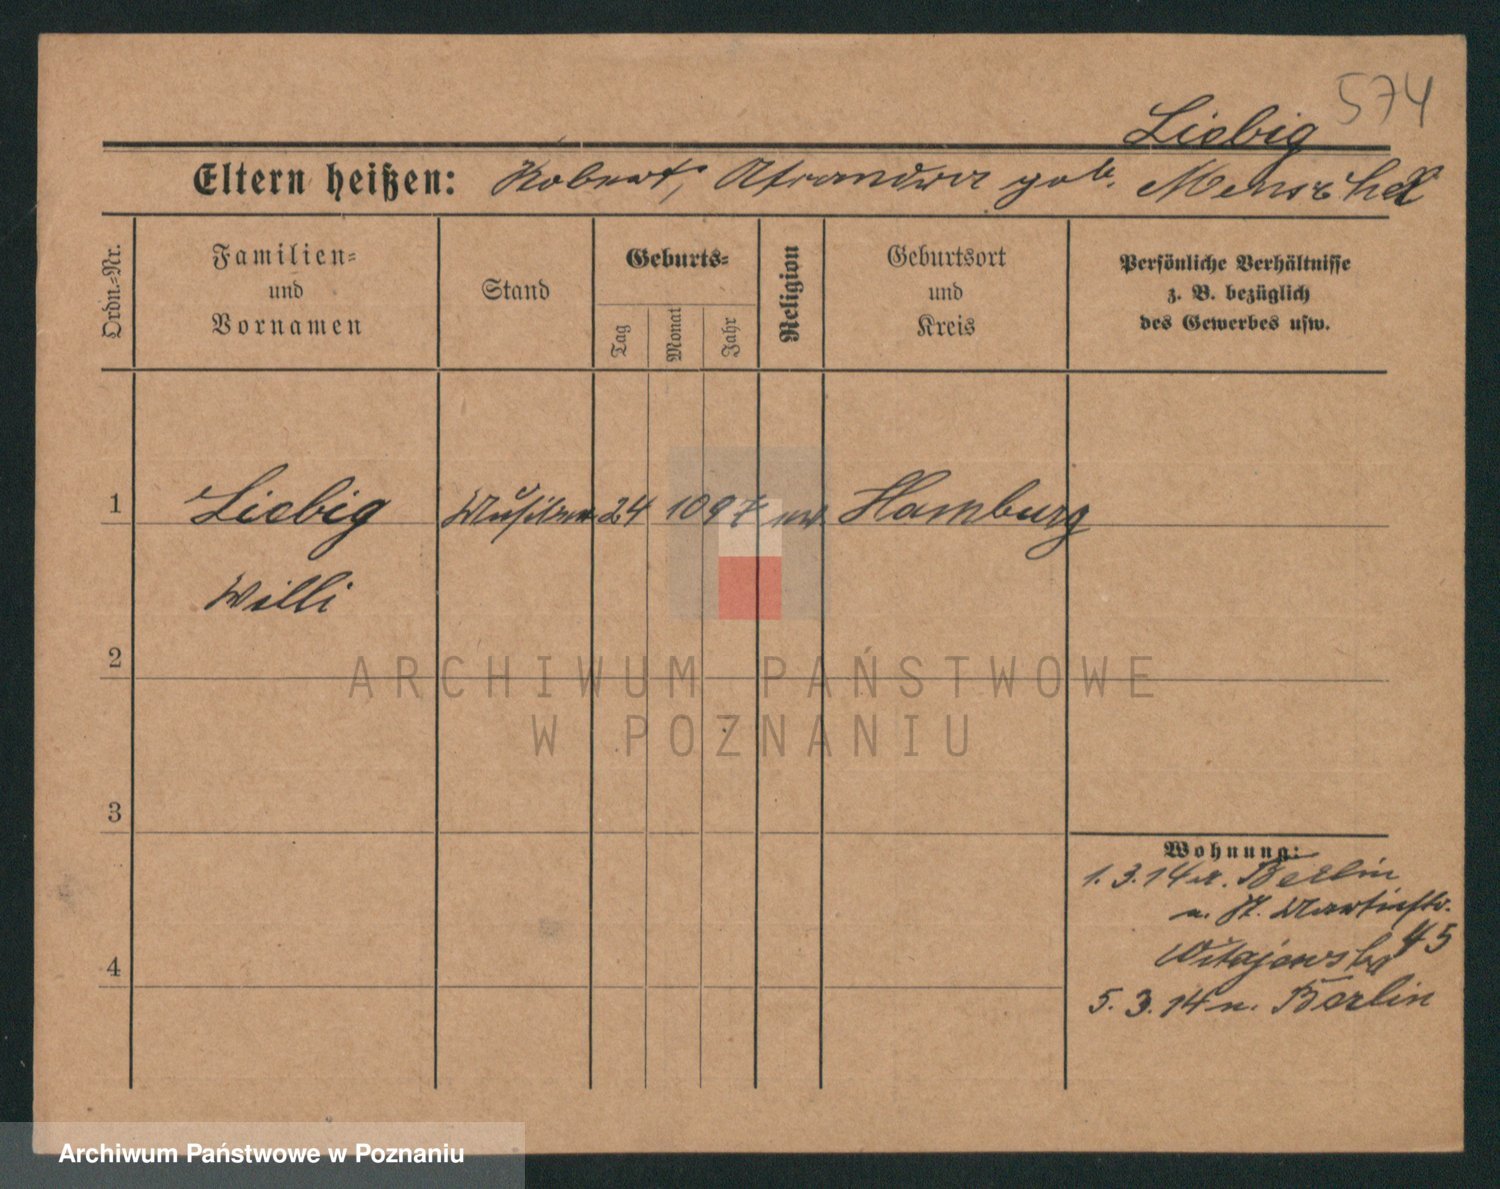 574
Liebig
Eltern heißen: Robert, geb. Menschel
Ordn.-Nr.
Familien-
und
Vornamen
Stand
Geburts-
Tag
Monat
Jahr
Religion
Geburtsort
und
Kreis
Persönliche Verhältnisse
z. B. bezüglich
des Gewerbes usw.
1 Liebig Musiker 24 10 97 Hamburg
Willi
2
ARCHIWUM PAŃSTWOWE
W POZNANIU
3
Wohnung:
1. 3. 14 v. Berlin
n. St. Martinstr.
45
4
5. 3. 14 n. Berlin
Archiwum Państwowe w Poznaniu